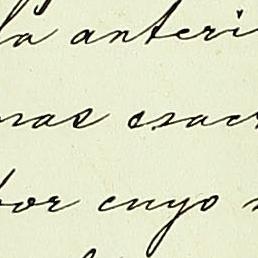 la anteri
mas exac
por cuyo